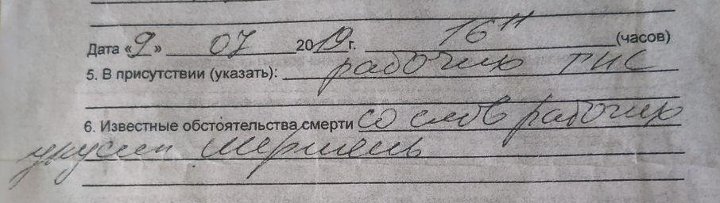 Дата «9» 07 2019 г. 16 11 (часов)
5. В присутствии (указать): рабочих ТПС
6. Известные обстоятельства смерти со слов рабочих
укусил шершень